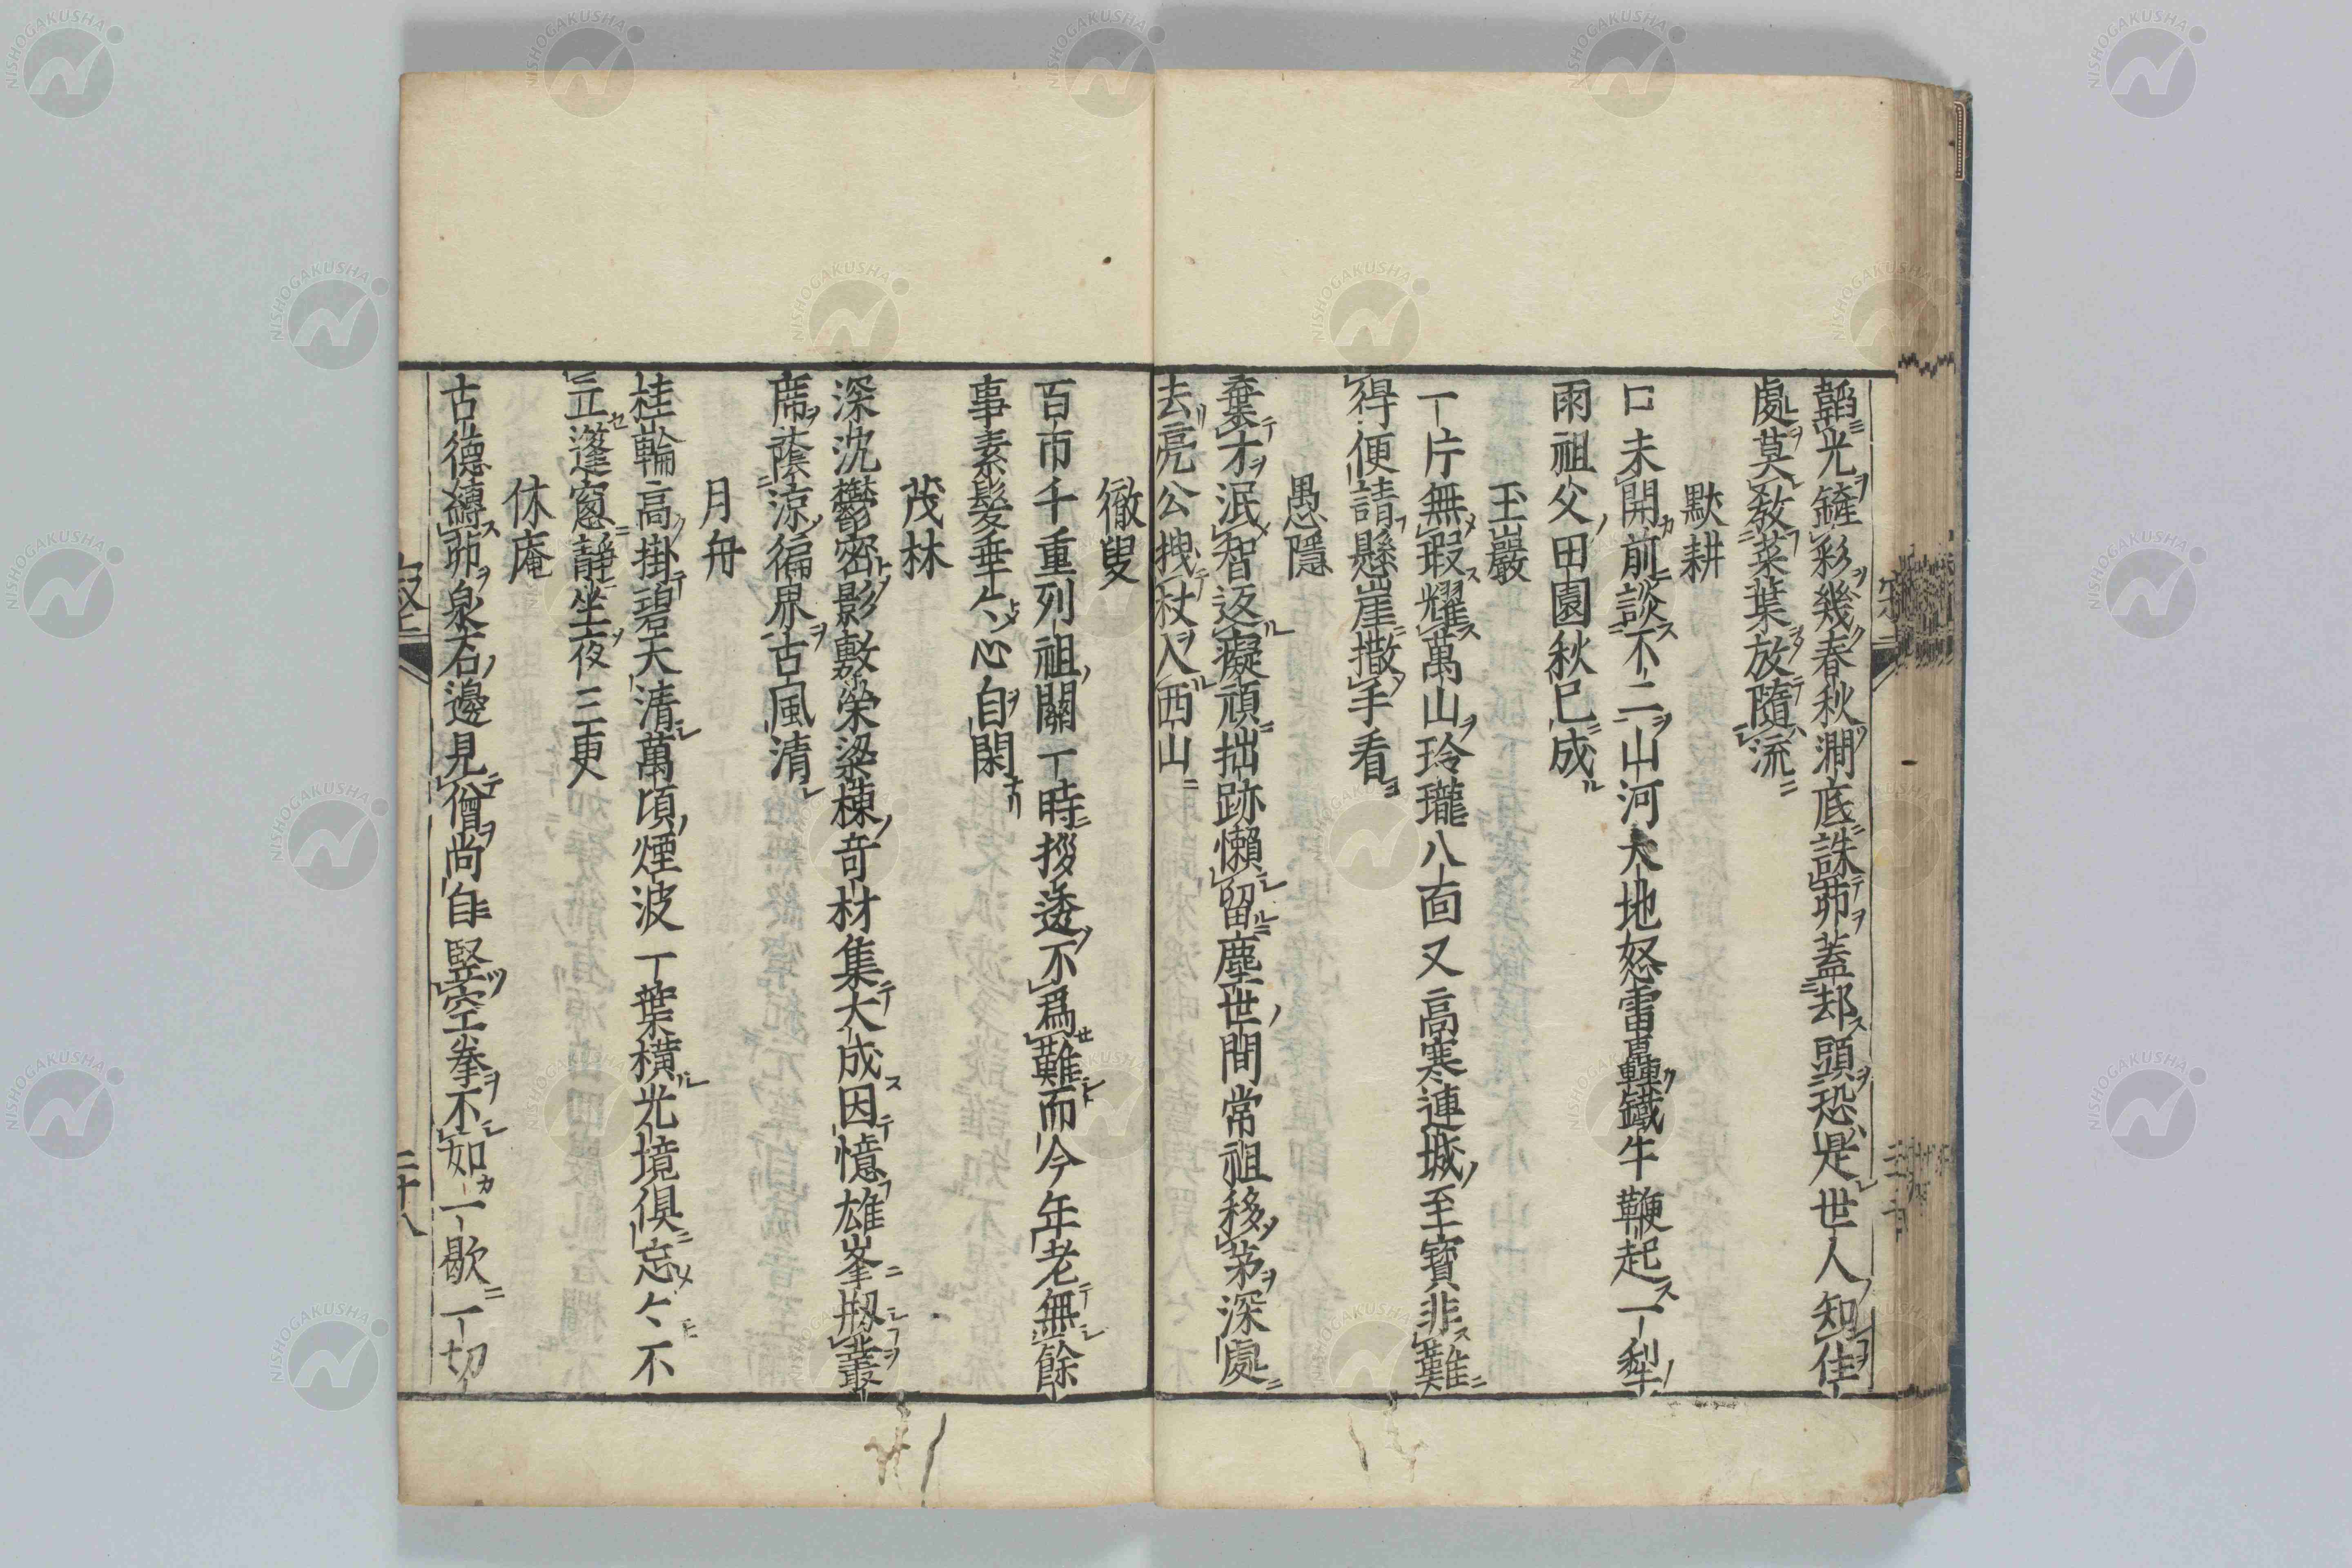 韜光鏟彩幾春秋澗底誅茆蓋却頭恐是世人知住
處莫教菜葉放隨流
默耕
口未開前談不二山河大地怒雷轟鐵牛鞭起一犁
雨祖父田園秋已成
玉巖
一片無瑕耀萬山玲瓏八面又高寒連城至寶非難
得便請懸崖撒手看
愚隱
棄才泯智返癡頑拙跡懶留塵世間常祖移茅深處
去亮公拽杖入西山
徹叟
百帀千重列祖關一時拶透不爲難而今年老無餘
事素髮垂々心自閑
茂林
深沈鬱密影敷榮梁棟奇材集大成因憶雄峯掰叢
席蔭涼徧界古風清
月舟
桂輪高掛碧天清萬頃煙波一葉橫光境俱忘々不
立蓬窻靜坐夜三更
休庵
古德縛茆泉石邊見僧尚自竪空拳不知一歇一切
二十八